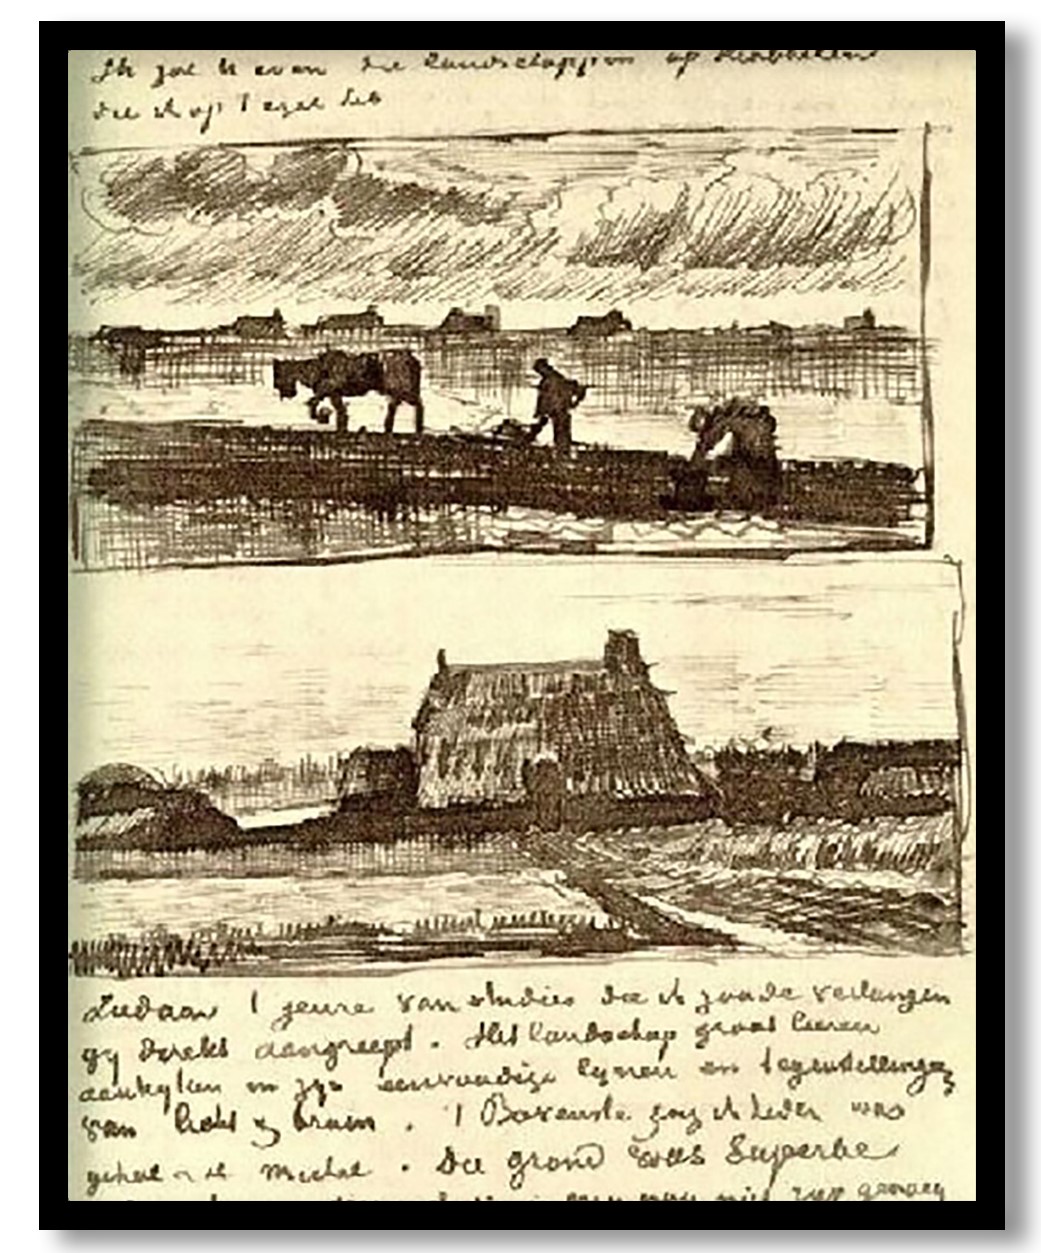 Ik zal U even die landschappen op krabbelen
die ik op 't ezel heb
Ziedaar 't genre van studies die ik zoude verlangen
gij direkt aangreept. Het landschap groot leeren
aankyken in zyn eenvoudige lynen en tegenstellingen
van licht & bruin. 't Bovenste zag ik heden was
geheel en al Michel. Die grond was superbe
nog niet ryp genoeg